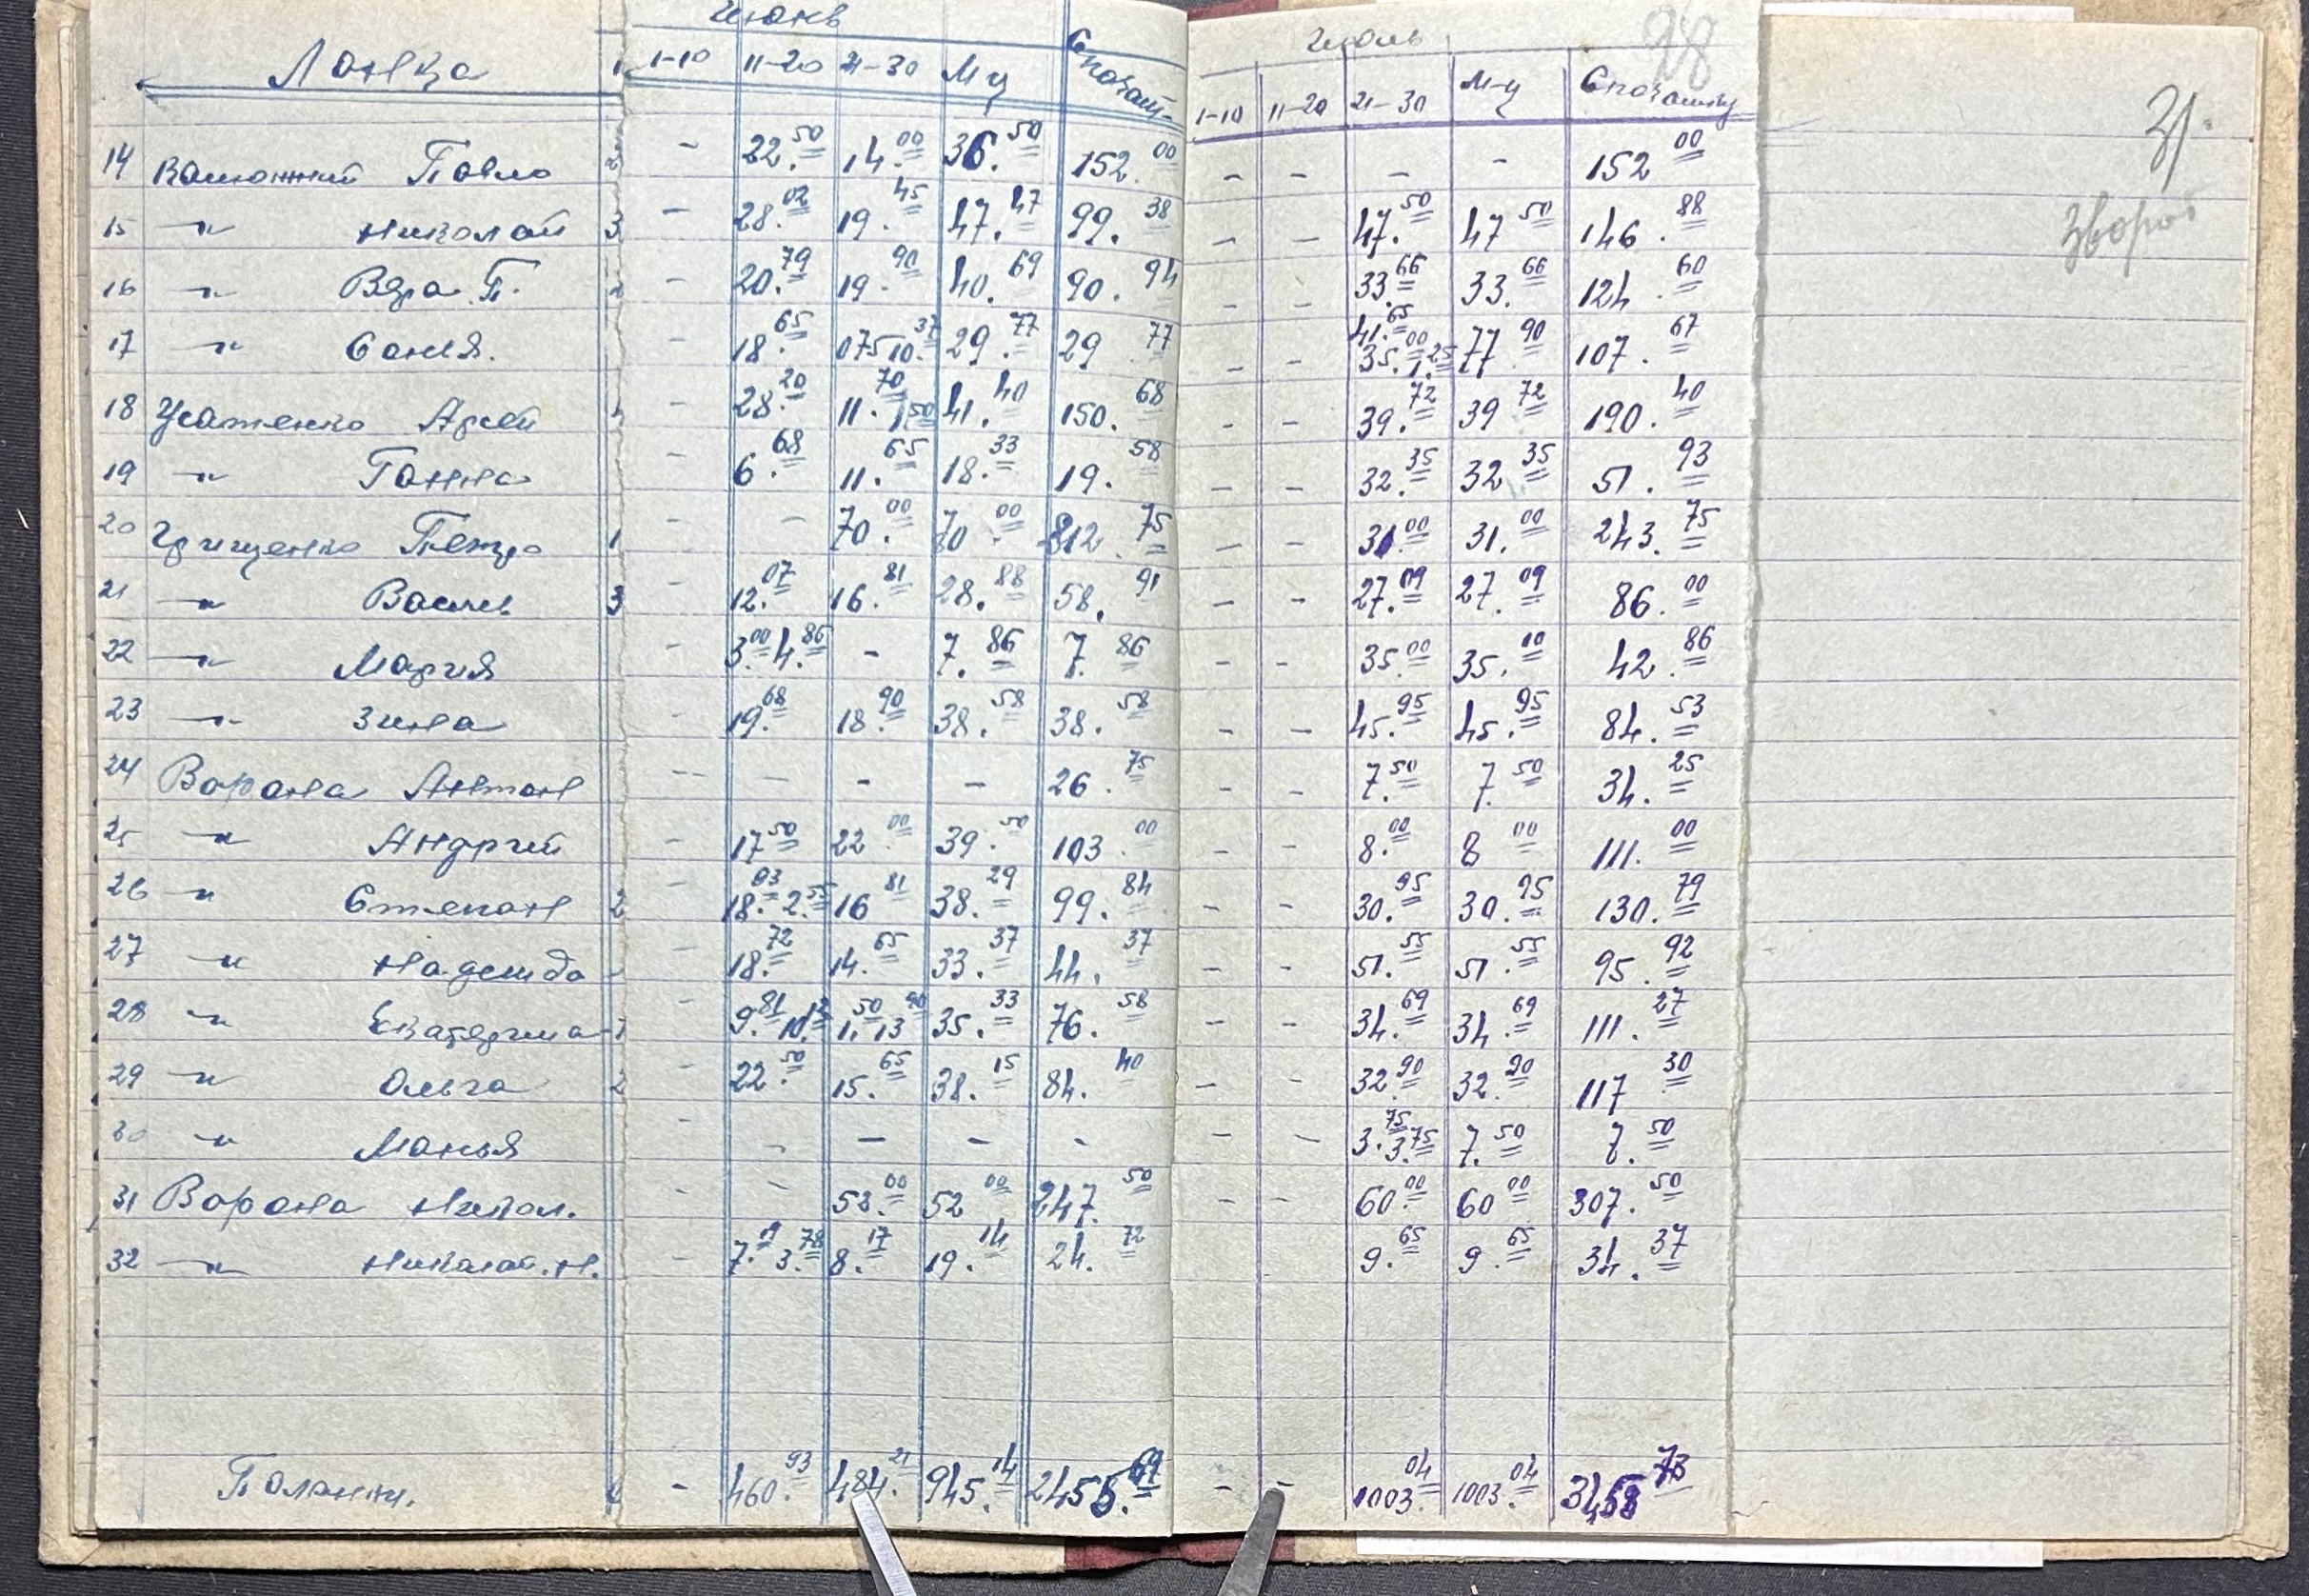 Июнь Июль 98
Ланка 1-10 11-20 21-30 М-ц С почат. 1-10 11-20 21-30 М-ц С початку 31.
зворот
14 Павло - 22.50 14.00 36.50 152.00 - - - - 152 00
15 -"- Николай 3 - 28.02 19.45 47.47 99.38 - - 47.50 47 50 146.88
16 -"- Вера П. - 20.79 19.90 40.69 90.94 - - 33.66 33.66 124.60
17 -"- Соня. 18.65 075 10.37 29.77 29 77 - - 41.65 35.00 1.25 77 90 107.67
18 Усатенко - 28.20 11.70 1.50 41.40 150.68 - - 39.72 39 72 190.40
19 -"- Ганна - 6.68 11.65 18.33 19.58 - - 32.35 32 35 51.93
20 Грищенко Петро 1 - - 70.00 70.00 212.75 - - 31.00 31.00 243.75
21 -"- Василь 3 - 12.07 16.81 28.88 58.91 - - 27.09 27.09 86.00
22 -"- Мария - 3.00 4.86 - 7.86 7.86 - - 35.00 35.00 42.86
23 -"- Зина - 19.68 18.90 38.58 38.58 - - 45.95 45.95 84.53
24 Ворона Антон - - - - 26.75 - - 7.50 7.50 34.25
25 -"- Андрий - 17.50 22.00 39.50 103.00 - - 8.00 8 00 111.00
26 -"- Степан 2 - 18.93 2.55 16 81 38.29 99.84 - - 30.95 30.95 130.79
27 -"- Надежда - 18.72 14.65 33.37 44.37 - - 51.55 51.55 95.92
28 -"- Екатерина 1 - 9.81 10.12 1.50 13 90 35.33 76.58 - - 34.69 34.69 111.27
29 -"- Ольга 2 - 22.50 15.65 38.15 84.40 - - 32.90 32.90 117 30
30 -"- Манья - - - - - - - 3.75 3.75 7.50 7.50
31 Ворона Никол. - - 52.00 52 00 247.50 - - 60.00 60 00 307.50
32 -"- Николай. Н. - 7.19 3.78 8.17 19.14 24.72 9.65 9.65 34.37
- 460.93 484.21 945.14 2455.69 - - 1003.04 1003.04 3458 73